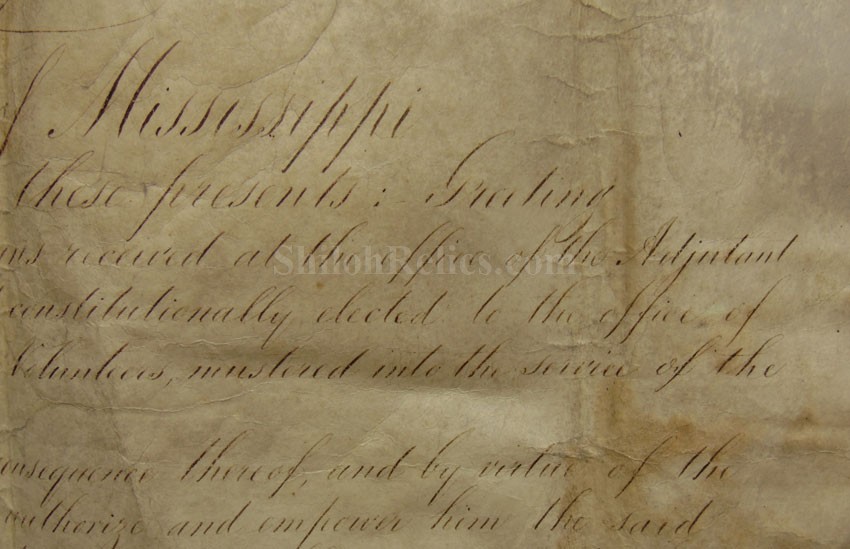 of Mississippi
these presents: Greeting
ns received at the office of the Adjutant
constitutionally elected to the office of
Volunteers, mustered into the service of the
onsequence thereof, and by virtue of the
authorize and empower him the said
ShilohRelics.com